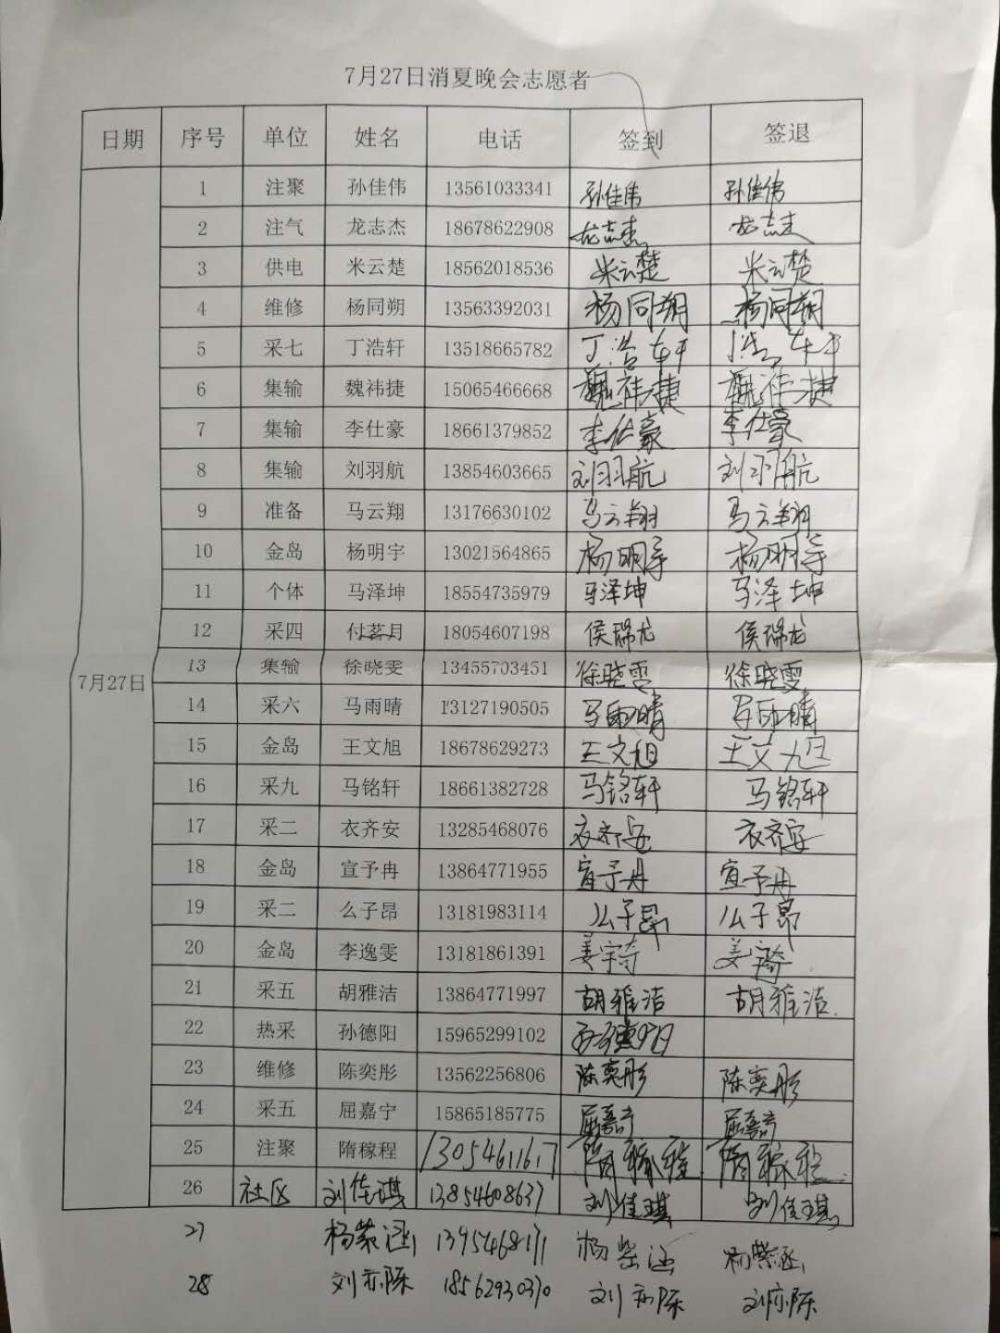 7月27日消夏晚会志愿者
日期 序号 单位 姓名 电话 签到 签退
1 注聚 孙佳伟 13561033341 孙佳伟 孙佳伟
2 注气 龙志杰 18678622908 龙志杰 龙志杰
3 供电 米云楚 18562018536 米云楚 米云楚
4 维修 杨同朔 13563392031 杨同朔 杨同朔
5 采七 丁浩轩 13518665782 丁浩轩 丁浩轩
6 集输 魏祎捷 15065466668 魏祎捷 魏祎捷
7 集输 李仕豪 18661379852 李仕豪 李仕豪
8 集输 刘羽航 13854603665 刘羽航 刘羽航
9 准备 马云翔 13176630102 马云翔 马云翔
10 金岛 杨明宇 13021564865 杨明宇 杨明宇
11 个体 马泽坤 18554735979 马泽坤 马泽坤
12 采四 付茗月 18054607198 侯瑞龙 侯瑞龙
7月27日 13 集输 徐晓雯 13455703451 徐晓雯 徐晓雯
14 采六 马雨晴 13127190505 马雨晴 马雨晴
15 金岛 王文旭 18678629273 王文旭 王文旭
16 采九 马铭轩 18661382728 马铭轩 马铭轩
17 采二 衣齐安 13285468076 衣齐安 衣齐安
18 金岛 宣予冉 13864771955 宣予冉 宣予冉
19 采二 么子昂 13181983114 么子昂 么子昂
20 金岛 李逸雯 13181861391 姜宇琦
21 采五 胡雅洁 13864771997 胡雅洁 胡雅洁
22 热采 孙德阳 15965299102 孙德阳
23 维修 陈奕彤 13562256806 陈奕彤 陈奕彤
24 采五 屈嘉宁 15865185775 屈嘉宁 屈嘉宁
25 注聚 隋稼程 13054611617 隋稼程 隋稼程
26 社区 刘佳琪 13854608637 刘佳琪 刘佳琪
27 杨紫涵 杨紫涵 杨紫涵
28 刘亦陈 18562930370 刘亦陈 刘亦陈